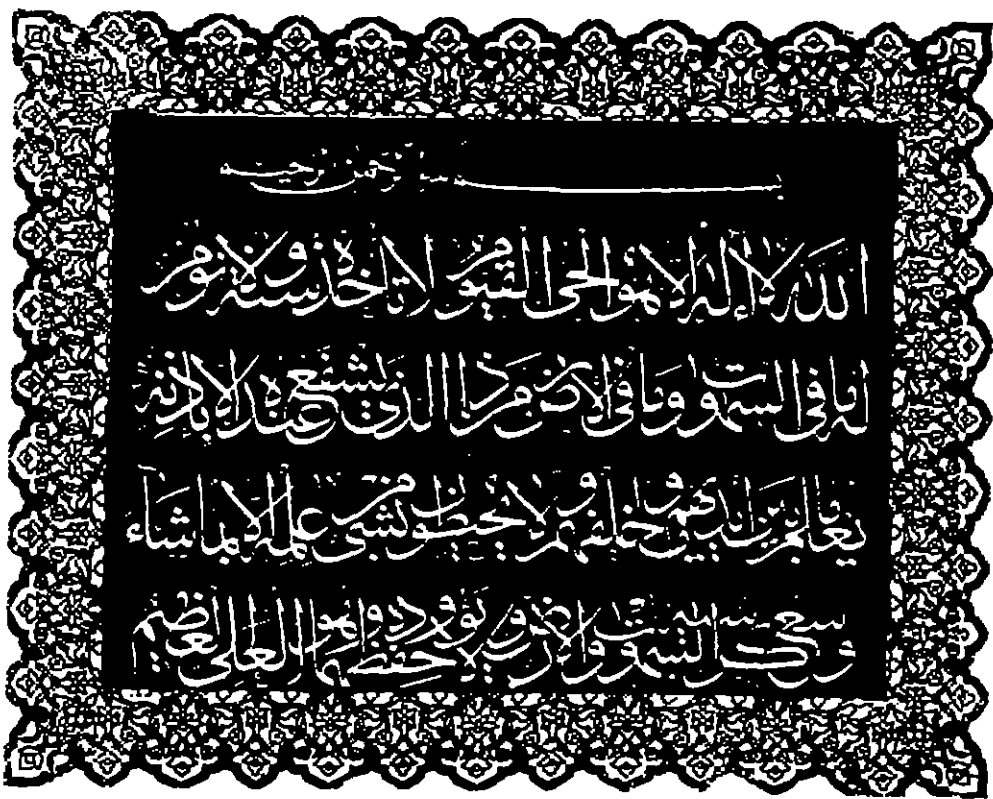 بسم الله الرحمن الرحيم
الله لا إله إلا هو الحي القيوم لا تأخذه سنة ولا نوم
له ما في السموات وما في الأرض من ذا الذي يشفع عنده إلا بإذنه
يعلم ما بين أيديهم وما خلفهم ولا يحيطون بشيء من علمه إلا بما شاء
وسع كرسيه السموات والأرض ولا يؤوده حفظهما وهو العلي العظيم